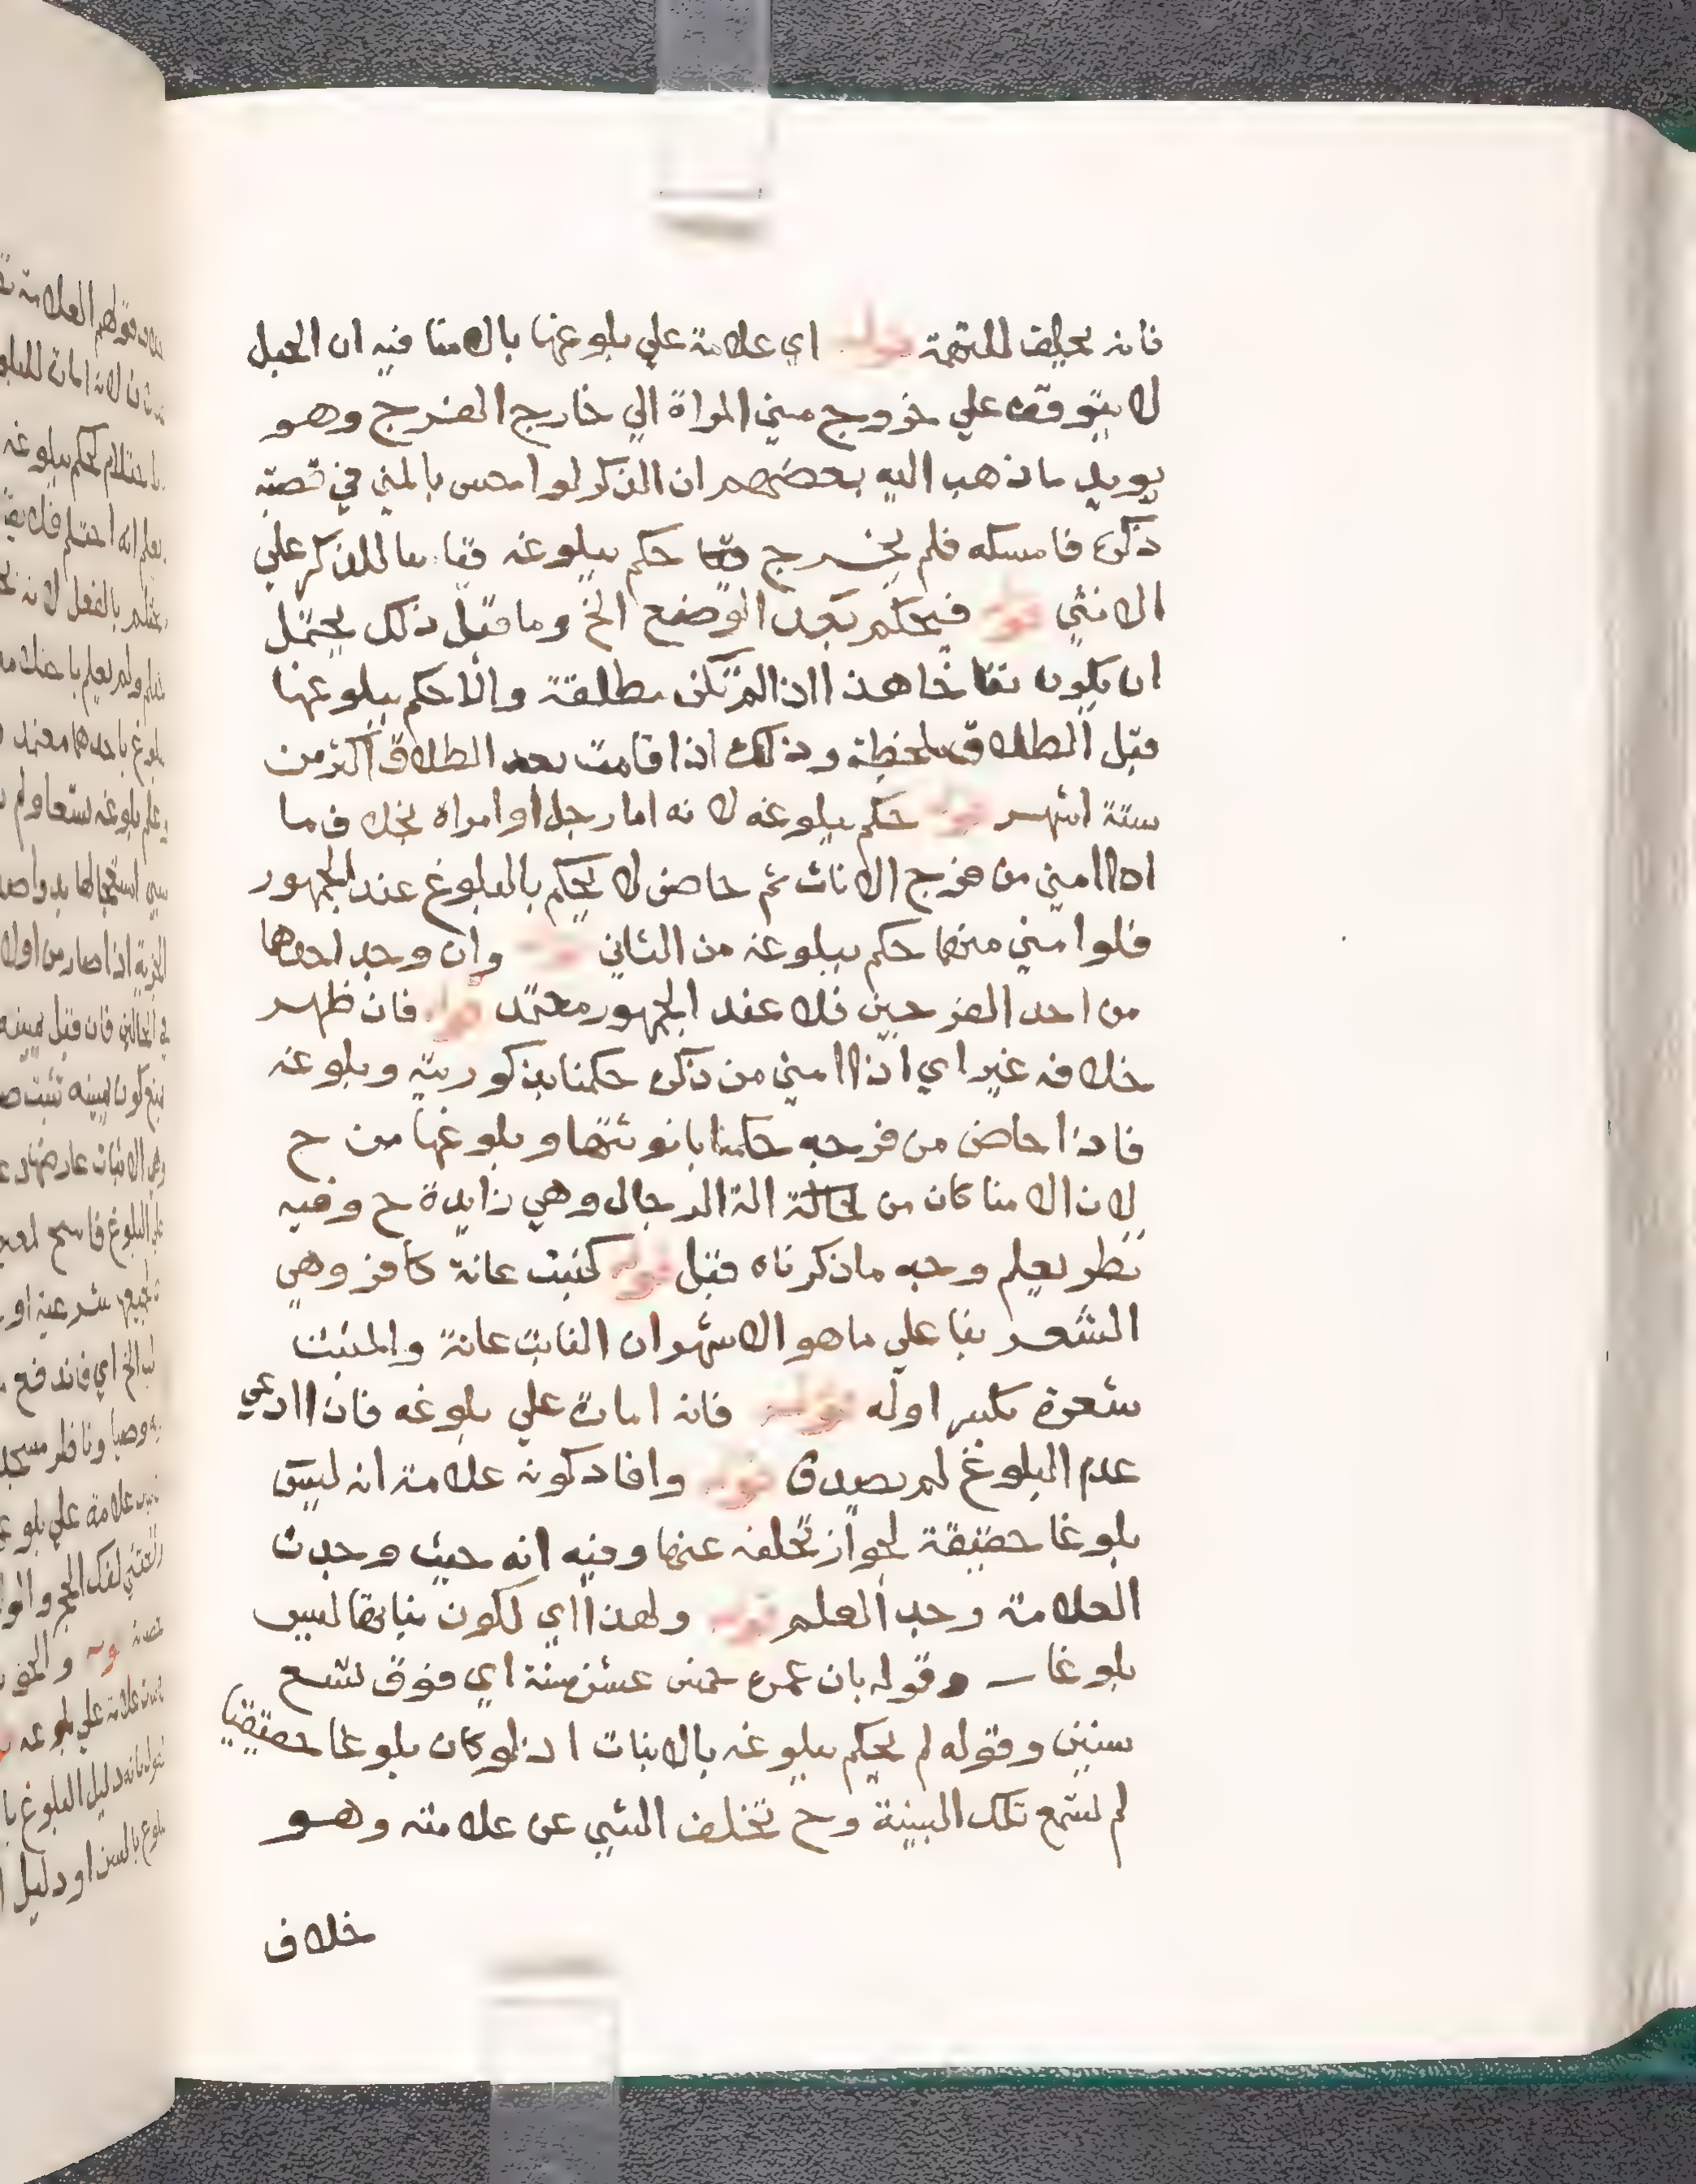 فانه يحلف للتهمة قوله اي علامة علي بلوغها بالامنا فيه ان الحبل
لا يتوقف علي خروج مني المراة الي خارج الفرج وهو
يويد ما ذهب اليه بعضهم ان الذكر لو احس بالمني في قصبة
ذكره فامسكه فلم يخرج حكم ببلوغه قياسا للذكر علي
الانثي قوله فيحكم بعد الوضع الخ وما قبل ذلك يحتمل
ان يكون نفاخا هذا اذا لم تكن مطلقة والا حكم ببلوغها
قبل الطلاق بلحظة وذلك اذا قامت بعد الطلاق اكثر من
ستة اشهر قوله حكم ببلوغه لانه اما رجل او امراة بخلاف ما
اذا امني من فرج الاناث ثم حاض لا يحكم بالبلوغ عند الجمهور
فلو امني منهما حكم ببلوغه من الثاني قوله وان وجد احدهما
من احد الفرجين فلا عند الجمهور معتمد قوله فان ظهر
خلافه غير اي اذا امني من ذكره حكمنا بذكوريته وبلوغه
فاذا حاض من فرجه حكمنا بانوثتها وبلوغها من ح
لان الامنا كان من الة الرجال وهي زايدة ح وفيه
نظر يعلم وجهه ما ذكرناه قبل قوله كنبت عانة كافر وهي
الشعر بنا علي ما هو الاشهر ان النابت عانة والمنبت
شعرة بكسر اوله قوله فانه امارة علي بلوغه فان ادعي
عدم البلوغ لم يصدق قوله وافاد كونه علامة انه ليس
بلوغا حقيقة لجواز تخلفه عنها وفيه انه حيث وجدت
العلامة وجد العلم قوله ولهذا اي لكون نباتها ليس
بلوغا وقوله بان عمره خمس عشرة سنة اي فوق تسع
سنين وقوله لم يحكم ببلوغه بالانبات اذ لو كان بلوغا حقيقيا
لم تسمع تلك البينة وح تخلف الشي عن علامته وهو
خلاف